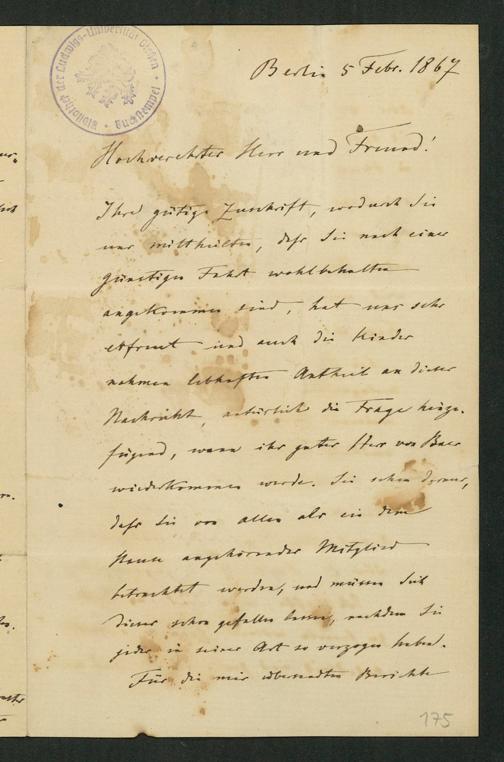 Bibliothek der Ludwigs-Universität Giessen • Buchstempel •
Berlin 5 Febr. 1867
Hochverehrter Herr und Freund!
Ihre gütige Zuschrift, wodurch Sie
uns mittheilten, daß Sie nach einer
günstigen Fahrt wohlbehalten
angekommen sind, hat uns sehr
erfreut und auch die Kinder
nahmen lebhaften Antheil an dieser
Nachricht, natürlich die Frage hinzu-
fügend, wann ihr guter Herr von Baer
wiederkommen werde. Sie sehen daraus,
daß Sie von allen als ein dem
Hause angehörendes Mitglied
betrachtet werden, und müssen Sich
dieses schon gefallen lassen, nachdem Sie
jeder in seiner Art so verzogen haben.
Für die mir übersandten Berichte
175